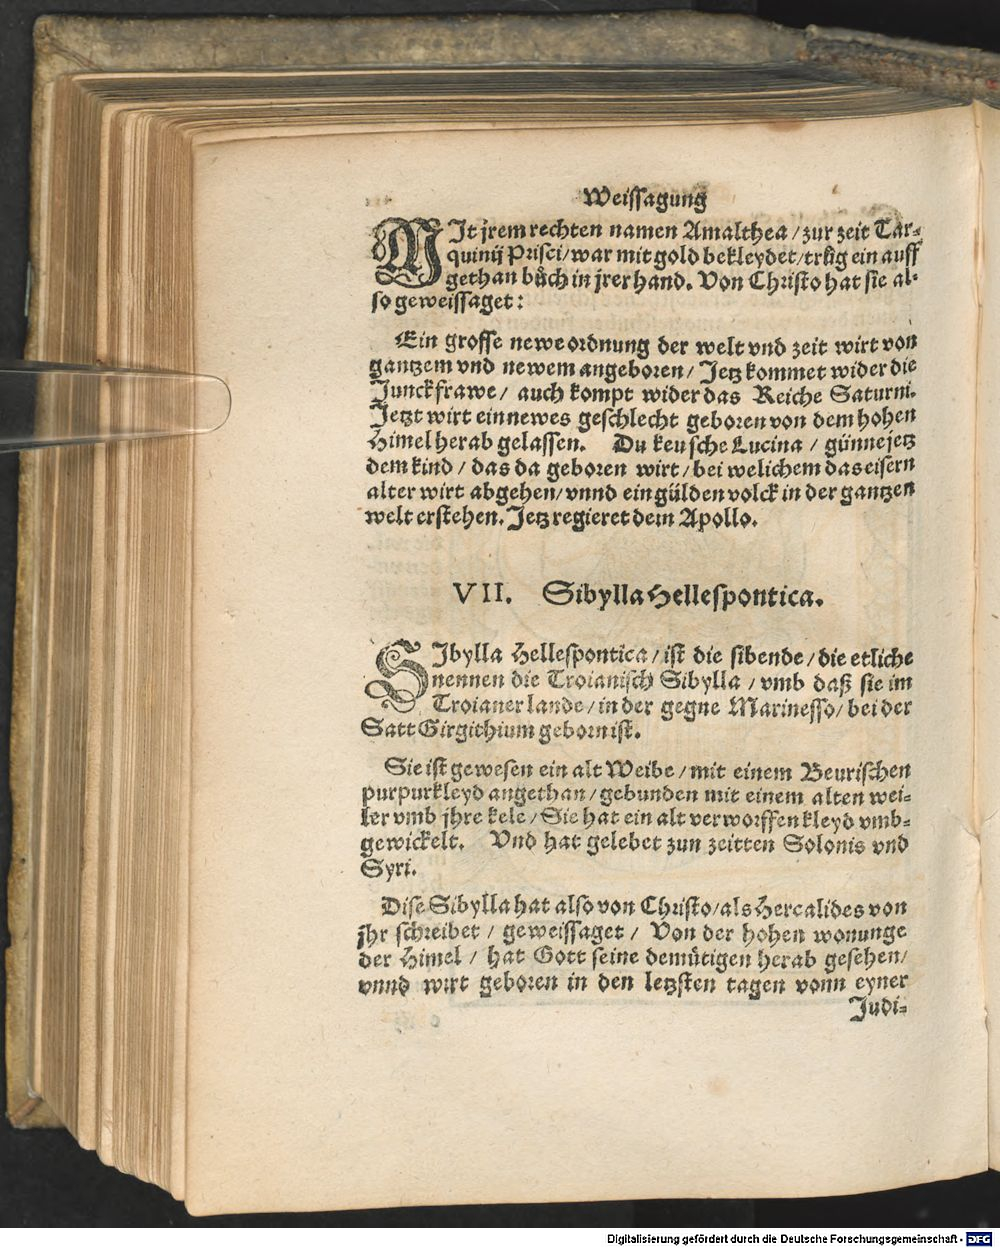 Weissagung
MIt jrem rechten namen Amalthea / zur zeit Tar-
quinij Prisci / war mit gold bekleydet / trůg ein auff
gethan bůch in jrer hand. Von Christo hat sie al-
so geweissaget:
Ein grosse newe ordnung der welt vnd zeit wirt von
gantzem vnd newem angeboren / Jetz kommet wider die
Junckfrawe / auch kompt wider das Reiche Saturni.
Jetzt wirt ein newes geschlecht geboren von dem hohen
Himel herab gelassen. Du keusche Lucina / günne jetz
dem kind / das da geboren wirt / bei welichem das eisern
alter wirt abgehen / vnnd ein gülden volck in der gantzen
welt erstehen. Jetz regieret dein Apollo.
VII. Sibylla Hellespontica.
SIbylla Hellespontica / ist die sibende / die etliche
nennen die Troianisch Sibylla / vmb daß sie im
Troianer lande / in der gegne Marinesso / bei der
Satt Girgithium geborn ist.
Sie ist gewesen ein alt Weibe / mit einem Beurischen
purpurkleyd angethan / gebunden mit einem alten wei-
ler vmb jhre kele / Sie hat ein alt verworffen kleyd vmb-
gewickelt. Vnd hat gelebet zun zeitten Solonis vnd
Syri.
Dise Sibylla hat also von Christo / als Hercalides von
jhr schreibet / geweissaget / Von der hohen wonunge
der Himel / hat Gott seine demütigen herab gesehen /
vnnd wirt geboren in den letzsten tagen vonn eyner
Judi-
Digitalisierung gefördert durch die Deutsche Forschungsgemeinschaft - DFG